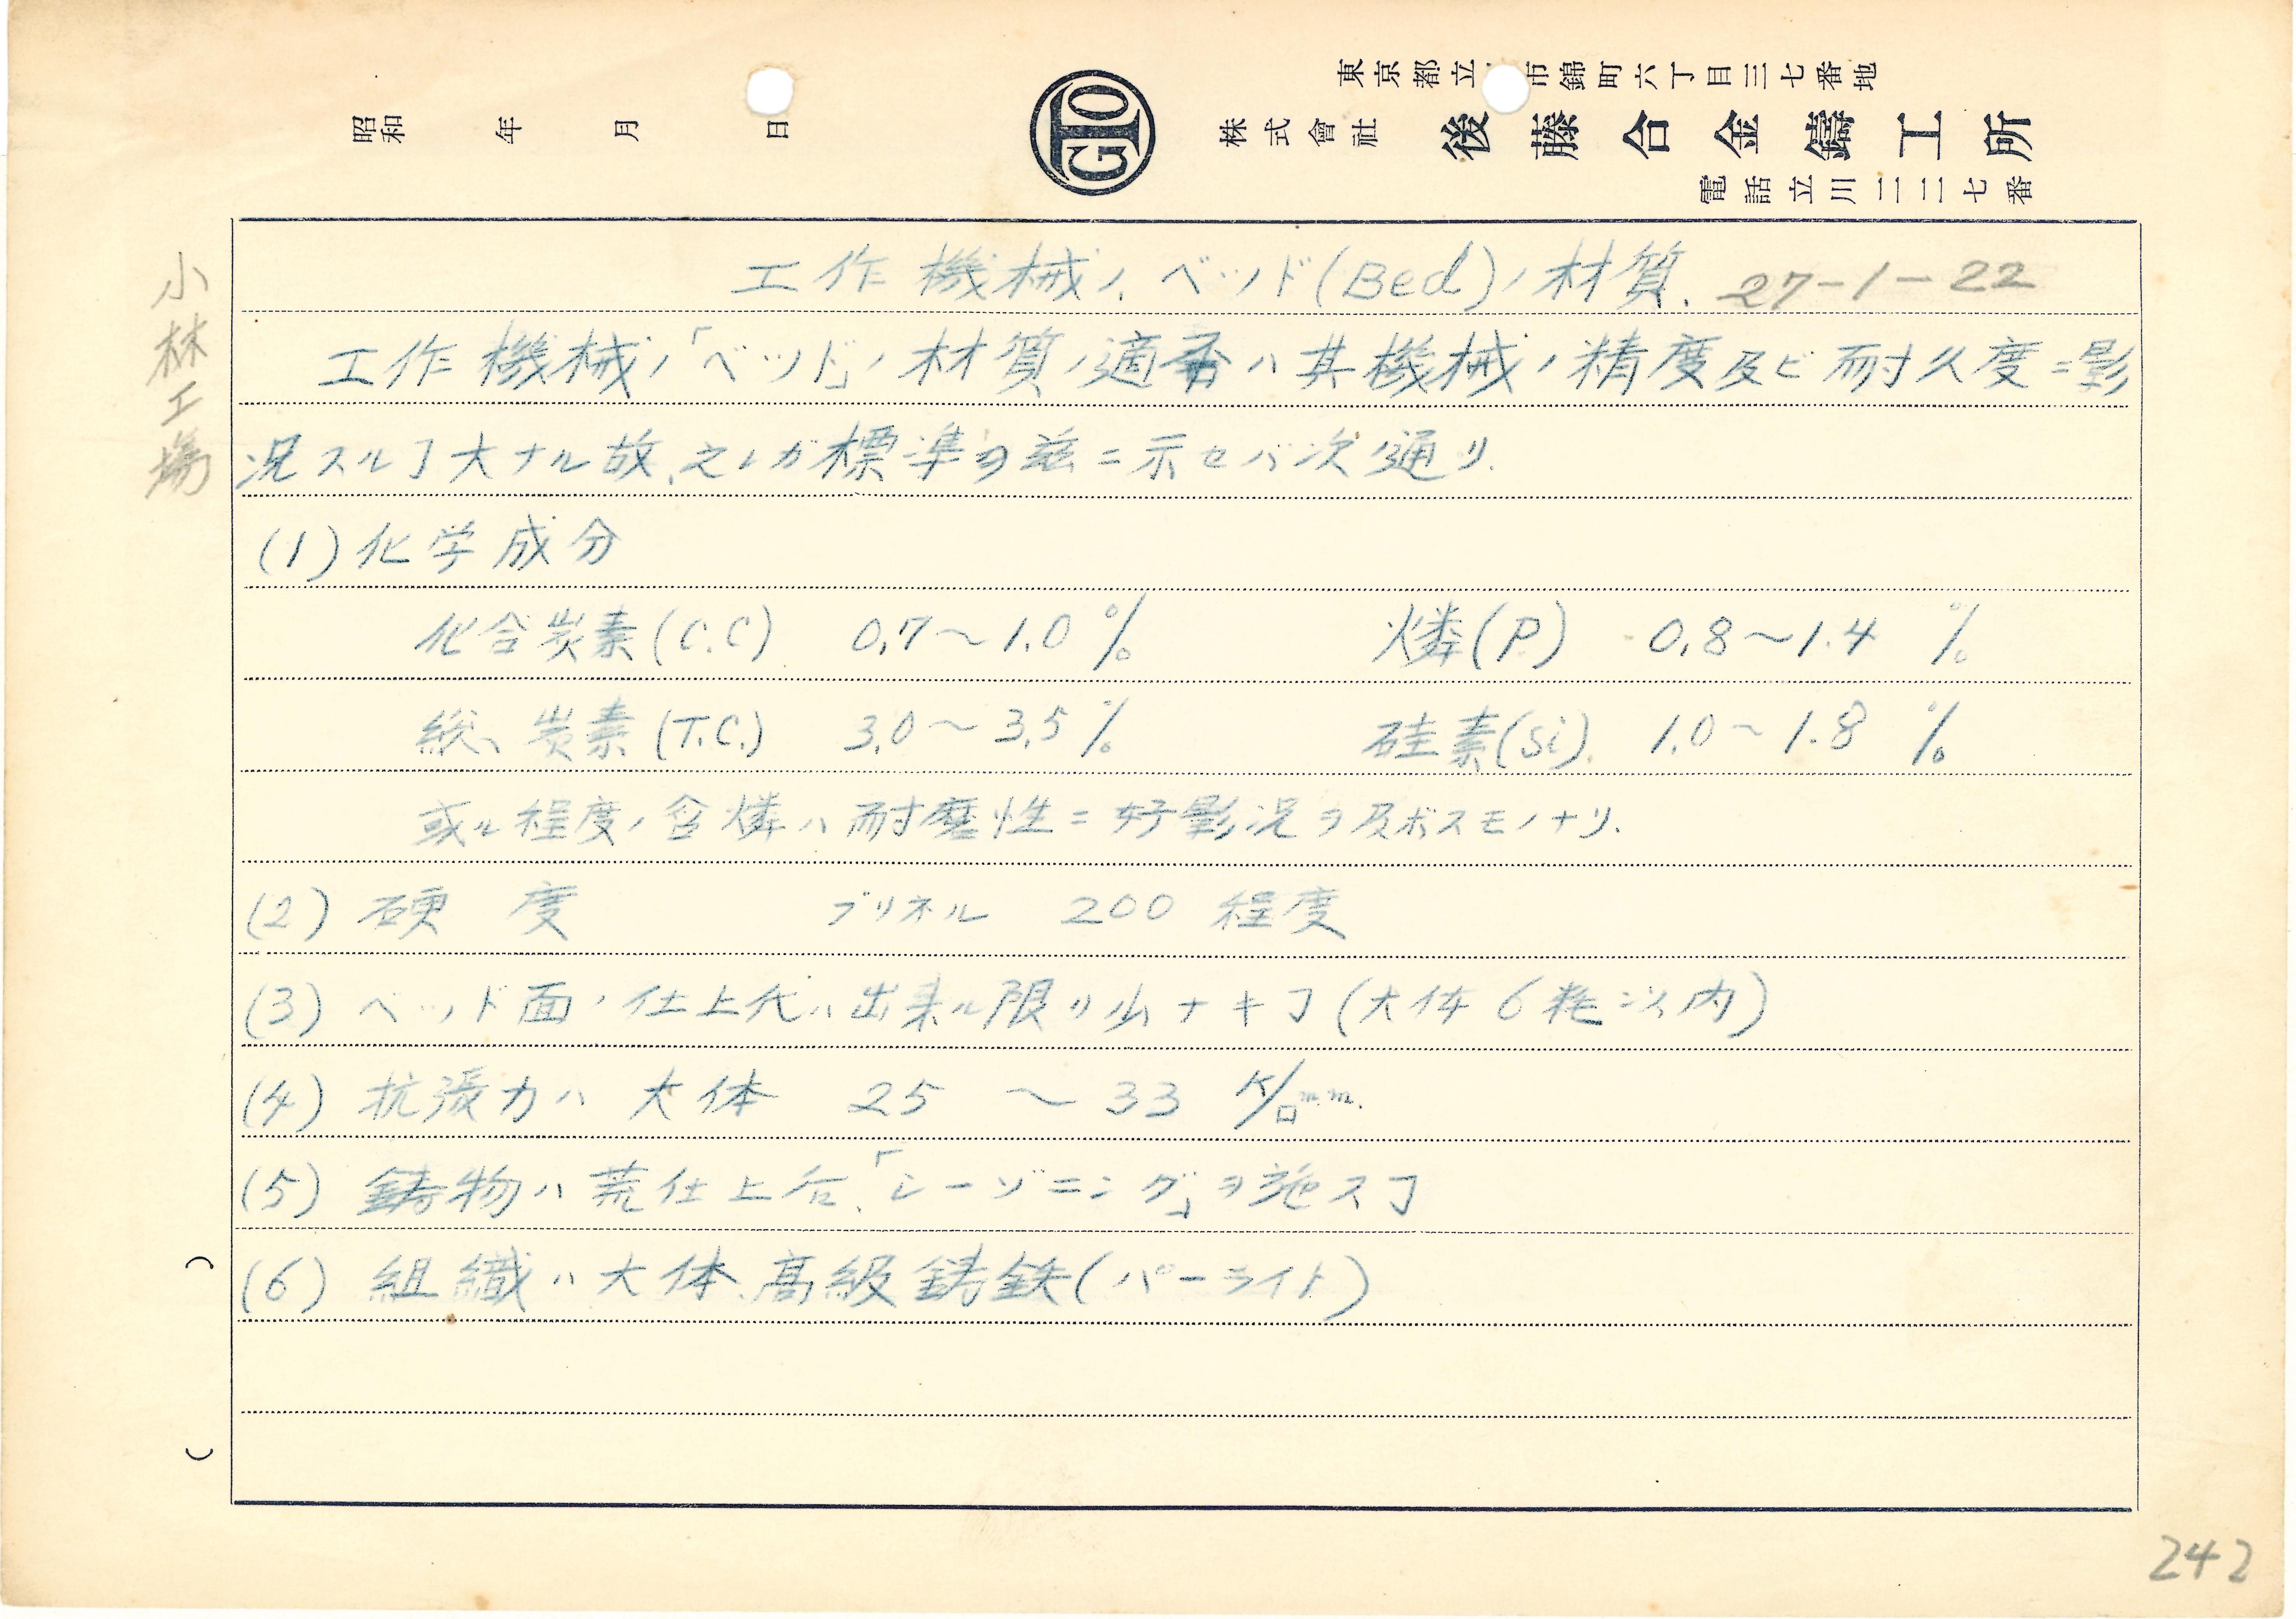 東京都立 市錦町六丁目三七番地
昭和 年 月 日
GTO
株式會社 後藤合金鑄工所
電話立川二二七番
小林工場
工作機械ノ、ベッド(Bed)ノ材質、27-1-22
工作機械ノ「ベッド」ノ材質ノ適否ハ其機械ノ精度及ビ耐久度ニ影
况スルヿ大ナル故、之レガ標準ヲ茲ニ示セバ次ノ通リ.
(1)化学成分
化合炭素(C.C) 0.7〜1.0% 燐(P) 0.8〜1.4%
総、炭素(T.C.) 3.0〜3.5% 硅素(Si). 1.0〜1.8%
或ル程度ノ含燐ハ耐磨性ニ好影况ヲ及ボスモノナリ.
(2)硬度 ブリネル 200 程度
(3)ベッド面ノ仕上代ハ出来ル限リ少ナキヿ(大体6粍以内)
(4)抗張力ハ大体 25 〜 33 K/□mm.
(5)鋳物ハ荒仕上后、「シーゾニング」ヲ施スヿ
(6)組織ハ大体、高級鋳鉄(パーライト)
( )
242